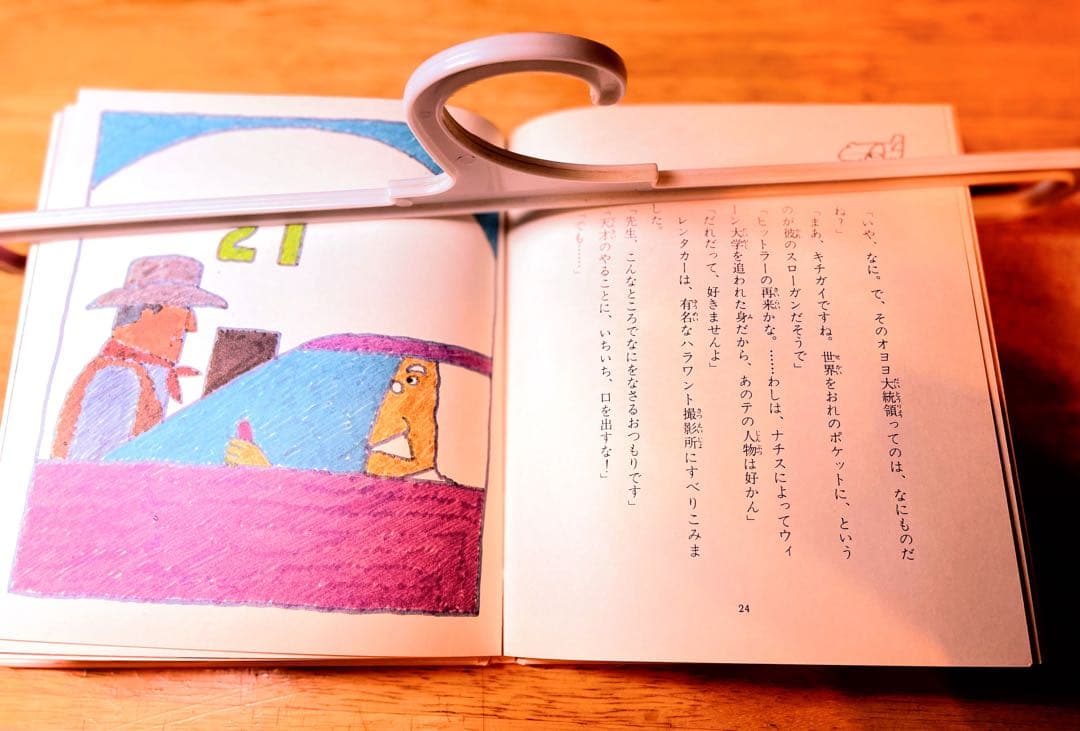 「いや、なに。で、そのオヨヨ大統領ってのは、なにものだ
ね？」
「まあ、キチガイですね。世界をおれのポケットに、という
のが彼のスローガンだそうで」
「ヒットラーの再来かな。……わしは、ナチスによってウィ
ーン大学を追われた身だから、あのテの人物は好かん」
「だれだって、好きませんよ」
レンタカーは、有名なハラワント撮影所にすべりこみま
した。
「先生、こんなところでなにをなさるおつもりです」
「天才のやることに、いちいち、口を出すな！」
「でも……」
24
21